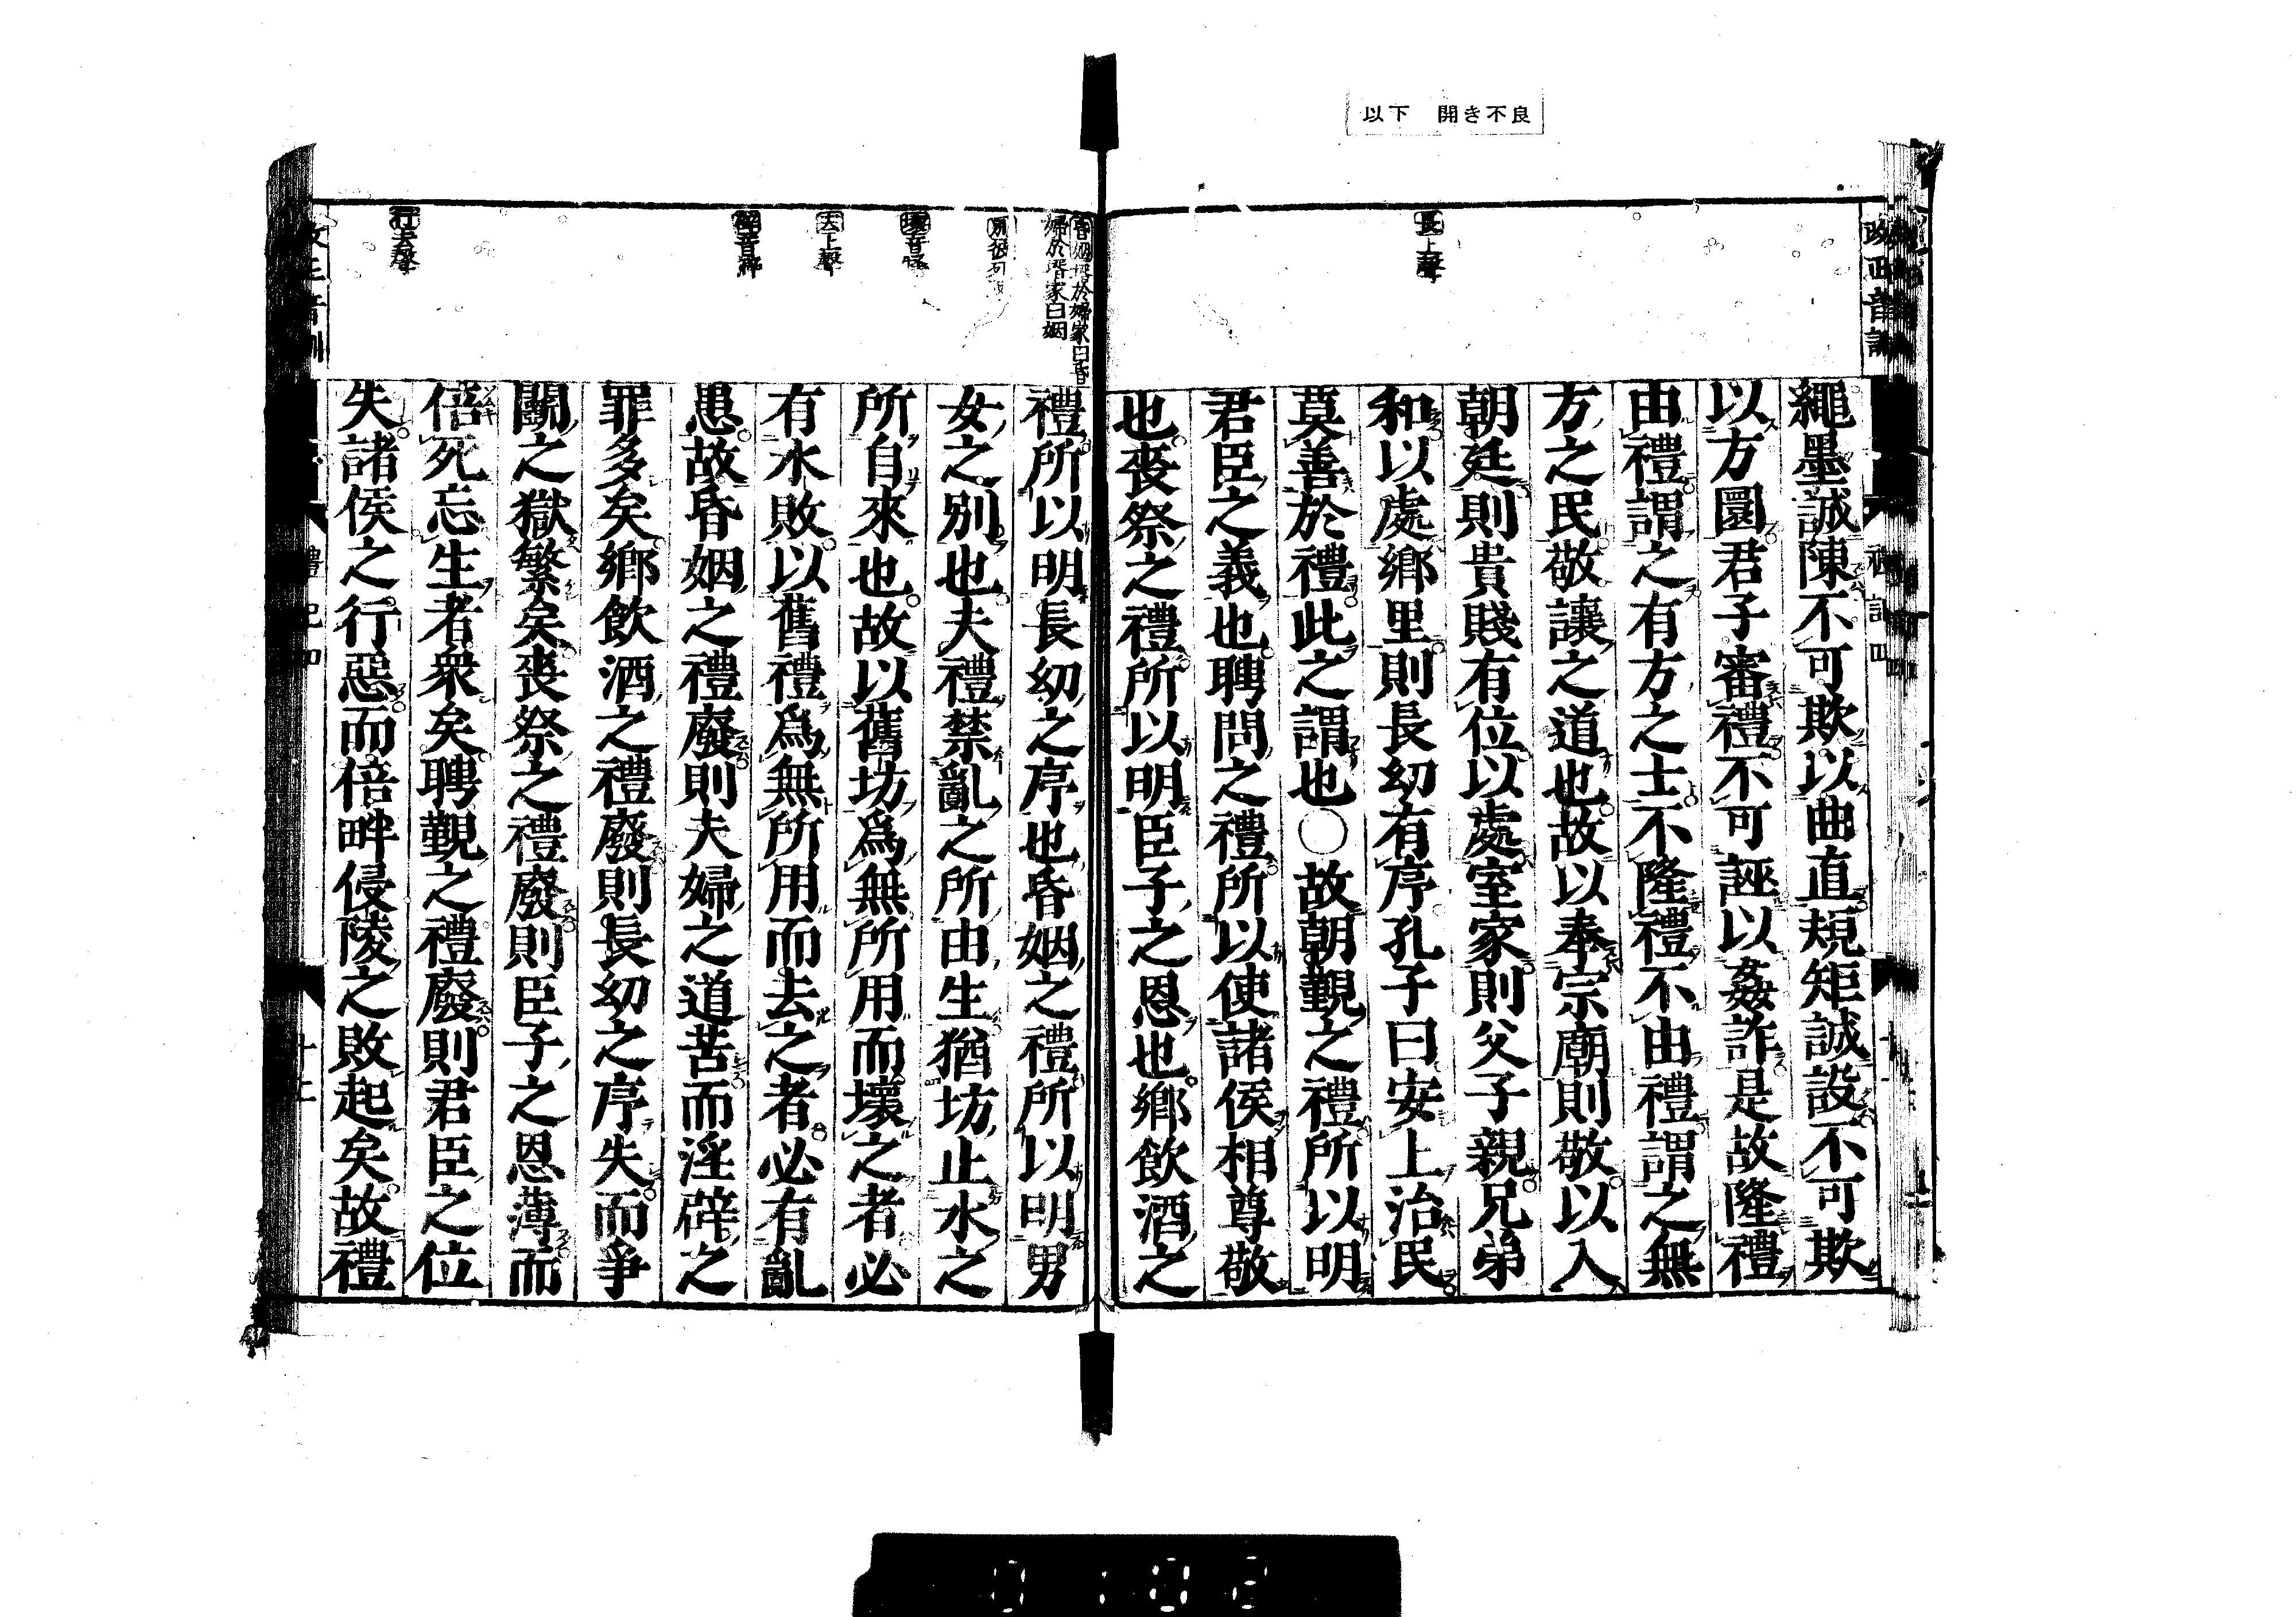 以下　開き不良
長上聲
繩墨誠陳不可欺以曲直規矩誠設不可欺
以方圜君子審禮不可誣以姦詐是故隆禮
由禮謂之有方之士不隆禮不由禮謂之無
方之民敬讓之道也故以奉宗廟則敬以入
朝廷則貴賤有位以處室家則父子親兄弟
和以處鄉里則長幼有序孔子曰安上治民
莫善於禮此之謂也○故朝覲之禮所以明
君臣之義也聘問之禮所以使諸侯相尊敬
也喪祭之禮所以明臣子之恩也鄉飲酒之
婦於壻家曰姻
壞音怪
去上聲
行去聲
禮所以明長幼之序也昏姻之禮所以明男
女之別也夫禮禁亂之所由生猶坊止水之
所自來也故以舊坊爲無所用而壞之者必
有水敗以舊禮爲無所用而去之者必有亂
患故昏姻之禮廢則夫婦之道苦而淫辟之
罪多矣鄉飲酒之禮廢則長幼之序失而爭
鬭之獄繁矣喪祭之禮廢則臣子之恩薄而
倍死忘生者衆矣聘覲之禮廢則君臣之位
失諸侯之行惡而倍畔侵陵之敗起矣故禮